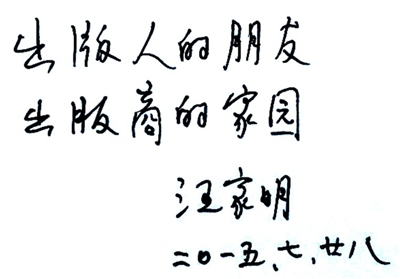 出版人的朋友
出版商的家园
汪家明
二〇一五、七、廿八